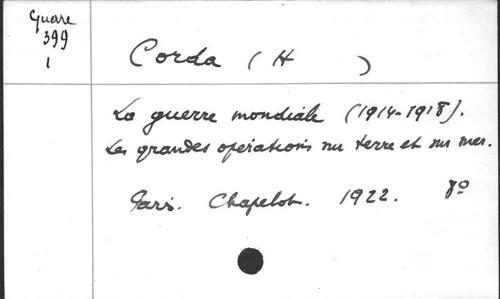 Guerre
399
1
Corda (H )
La guerre mondiale (1914-1918).
Les grandes opérations sur terre et sur mer.
Paris. Chapelot. 1922. 8º